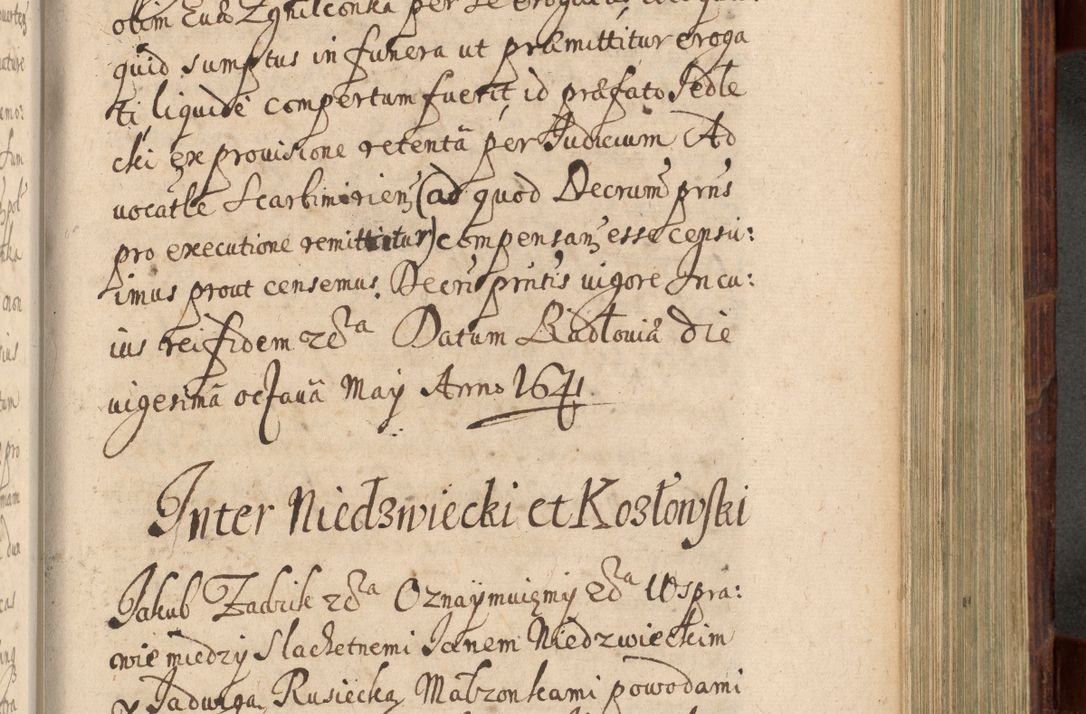 olim Euæ Zgnilconka per se
quid sumptus in funera ut præmittitur eroga
ti liquide compertum fuerit, id præfato Sedle
cki ex prouisione retentâ per Judicium Ad
uocatle Scarbimirien (ad quod Decrum prns
pro executione remittitur) compensan esse censu:
imus prout censemus. Decri prntis uigore In cu:
ius rei fidem Datum Radłouiæ die
uigesimâ octauâ Maij Anno 1641
Inter Niedzwiecki et Kozłowski
Jakub Zadzik Oznaymuięmy W spra:
wie miedzy Slachetnemi Janem Niedzwieckim
y Jadwigą Rusiecką Małzonkami powodami